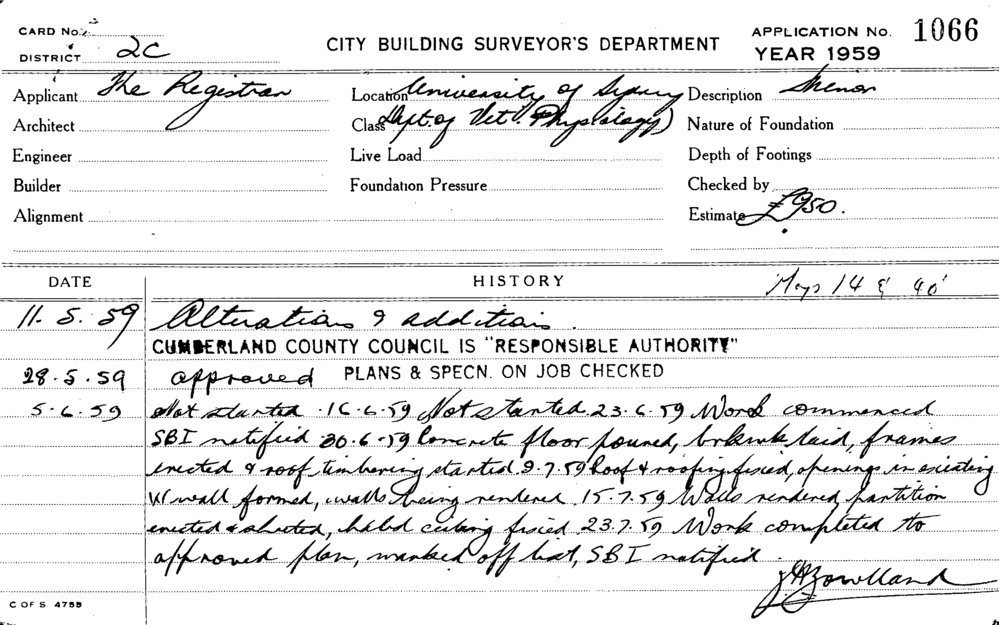 CARD No.
DISTRICT 2C
CITY BUILDING SURVEYOR'S DEPARTMENT
APPLICATION No. 1066
YEAR 1959
Applicant The Registrar
Location University of Sydney
Description Minor
Architect
Class Dept. of Vet. Physiology)
Nature of Foundation
Engineer
Live Load
Depth of Footings
Builder
Foundation Pressure
Checked by
Alignment
Estimate £950.
DATE
HISTORY
Maps 14 & 40
11. 5. 59 Alterations & additions.
CUMBERLAND COUNTY COUNCIL IS "RESPONSIBLE AUTHORITY"
28.5.59 approved PLANS & SPECN. ON JOB CHECKED
5.6.59 Not started 16.6.59 Not started 23.6.59 Work commenced
SBI notified 30.6.59 Concrete floor poured, brkwk laid, frames
erected & roof timbering started 9.7.59 Roof & roofing fixed, openings in existing
W wall formed, walls being rendered 15.7.59 Walls rendered, partition
erected & sheeted, ceiling fixed 23.7.59 Work completed to
approved plan, marked off list, SBI notified.
C OF S 4755